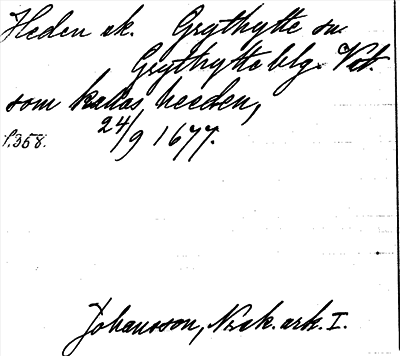 Heden ek. Grythytte sn.
Grythytte blg. Vst.
som kallas heeden,
s. 358. 24/9 1677.
Johansson, Nzek. ark. I.